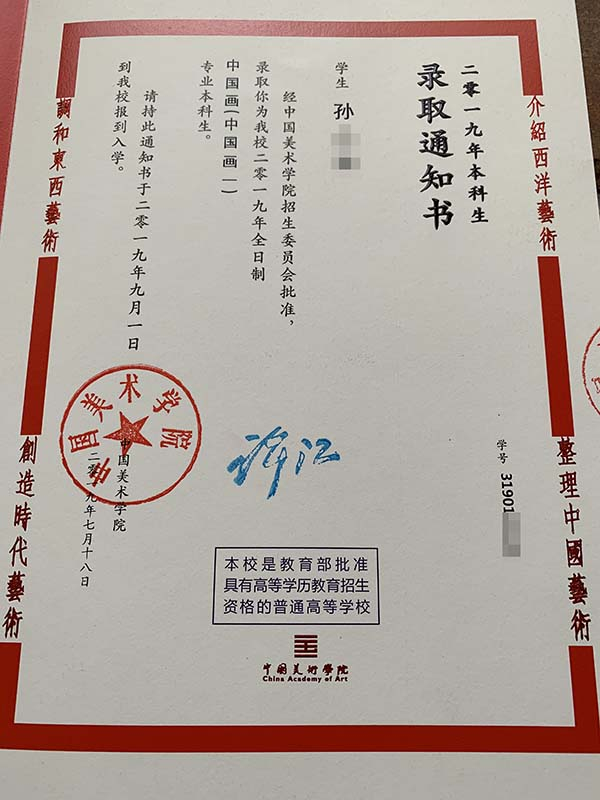 介紹西洋藝術
整理中國藝術
調和東西藝術
創造時代藝術
二零一九年本科生
录取通知书
学生 孙
经中国美术学院招生委员会批准，
录取你为我校二零一九年全日制
中国画(中国画一)
专业本科生。
请持此通知书于二零一九年九月一日
到我校报到入学。
中国美术学院
二零一九年七月十八日
中国美术学院
许江
学号 31901
本校是教育部批准
具有高等学历教育招生
资格的普通高等学校
中国美術學院
China Academy of Art